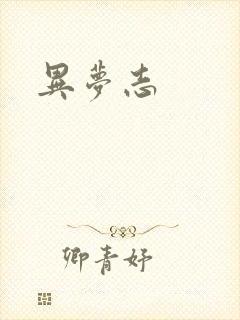 異夢志
卿青妤